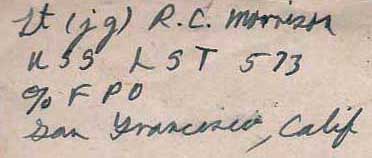 Lt (jg) R.C. Morrison
USS LST 573
% F P O
San Francisco, Calif